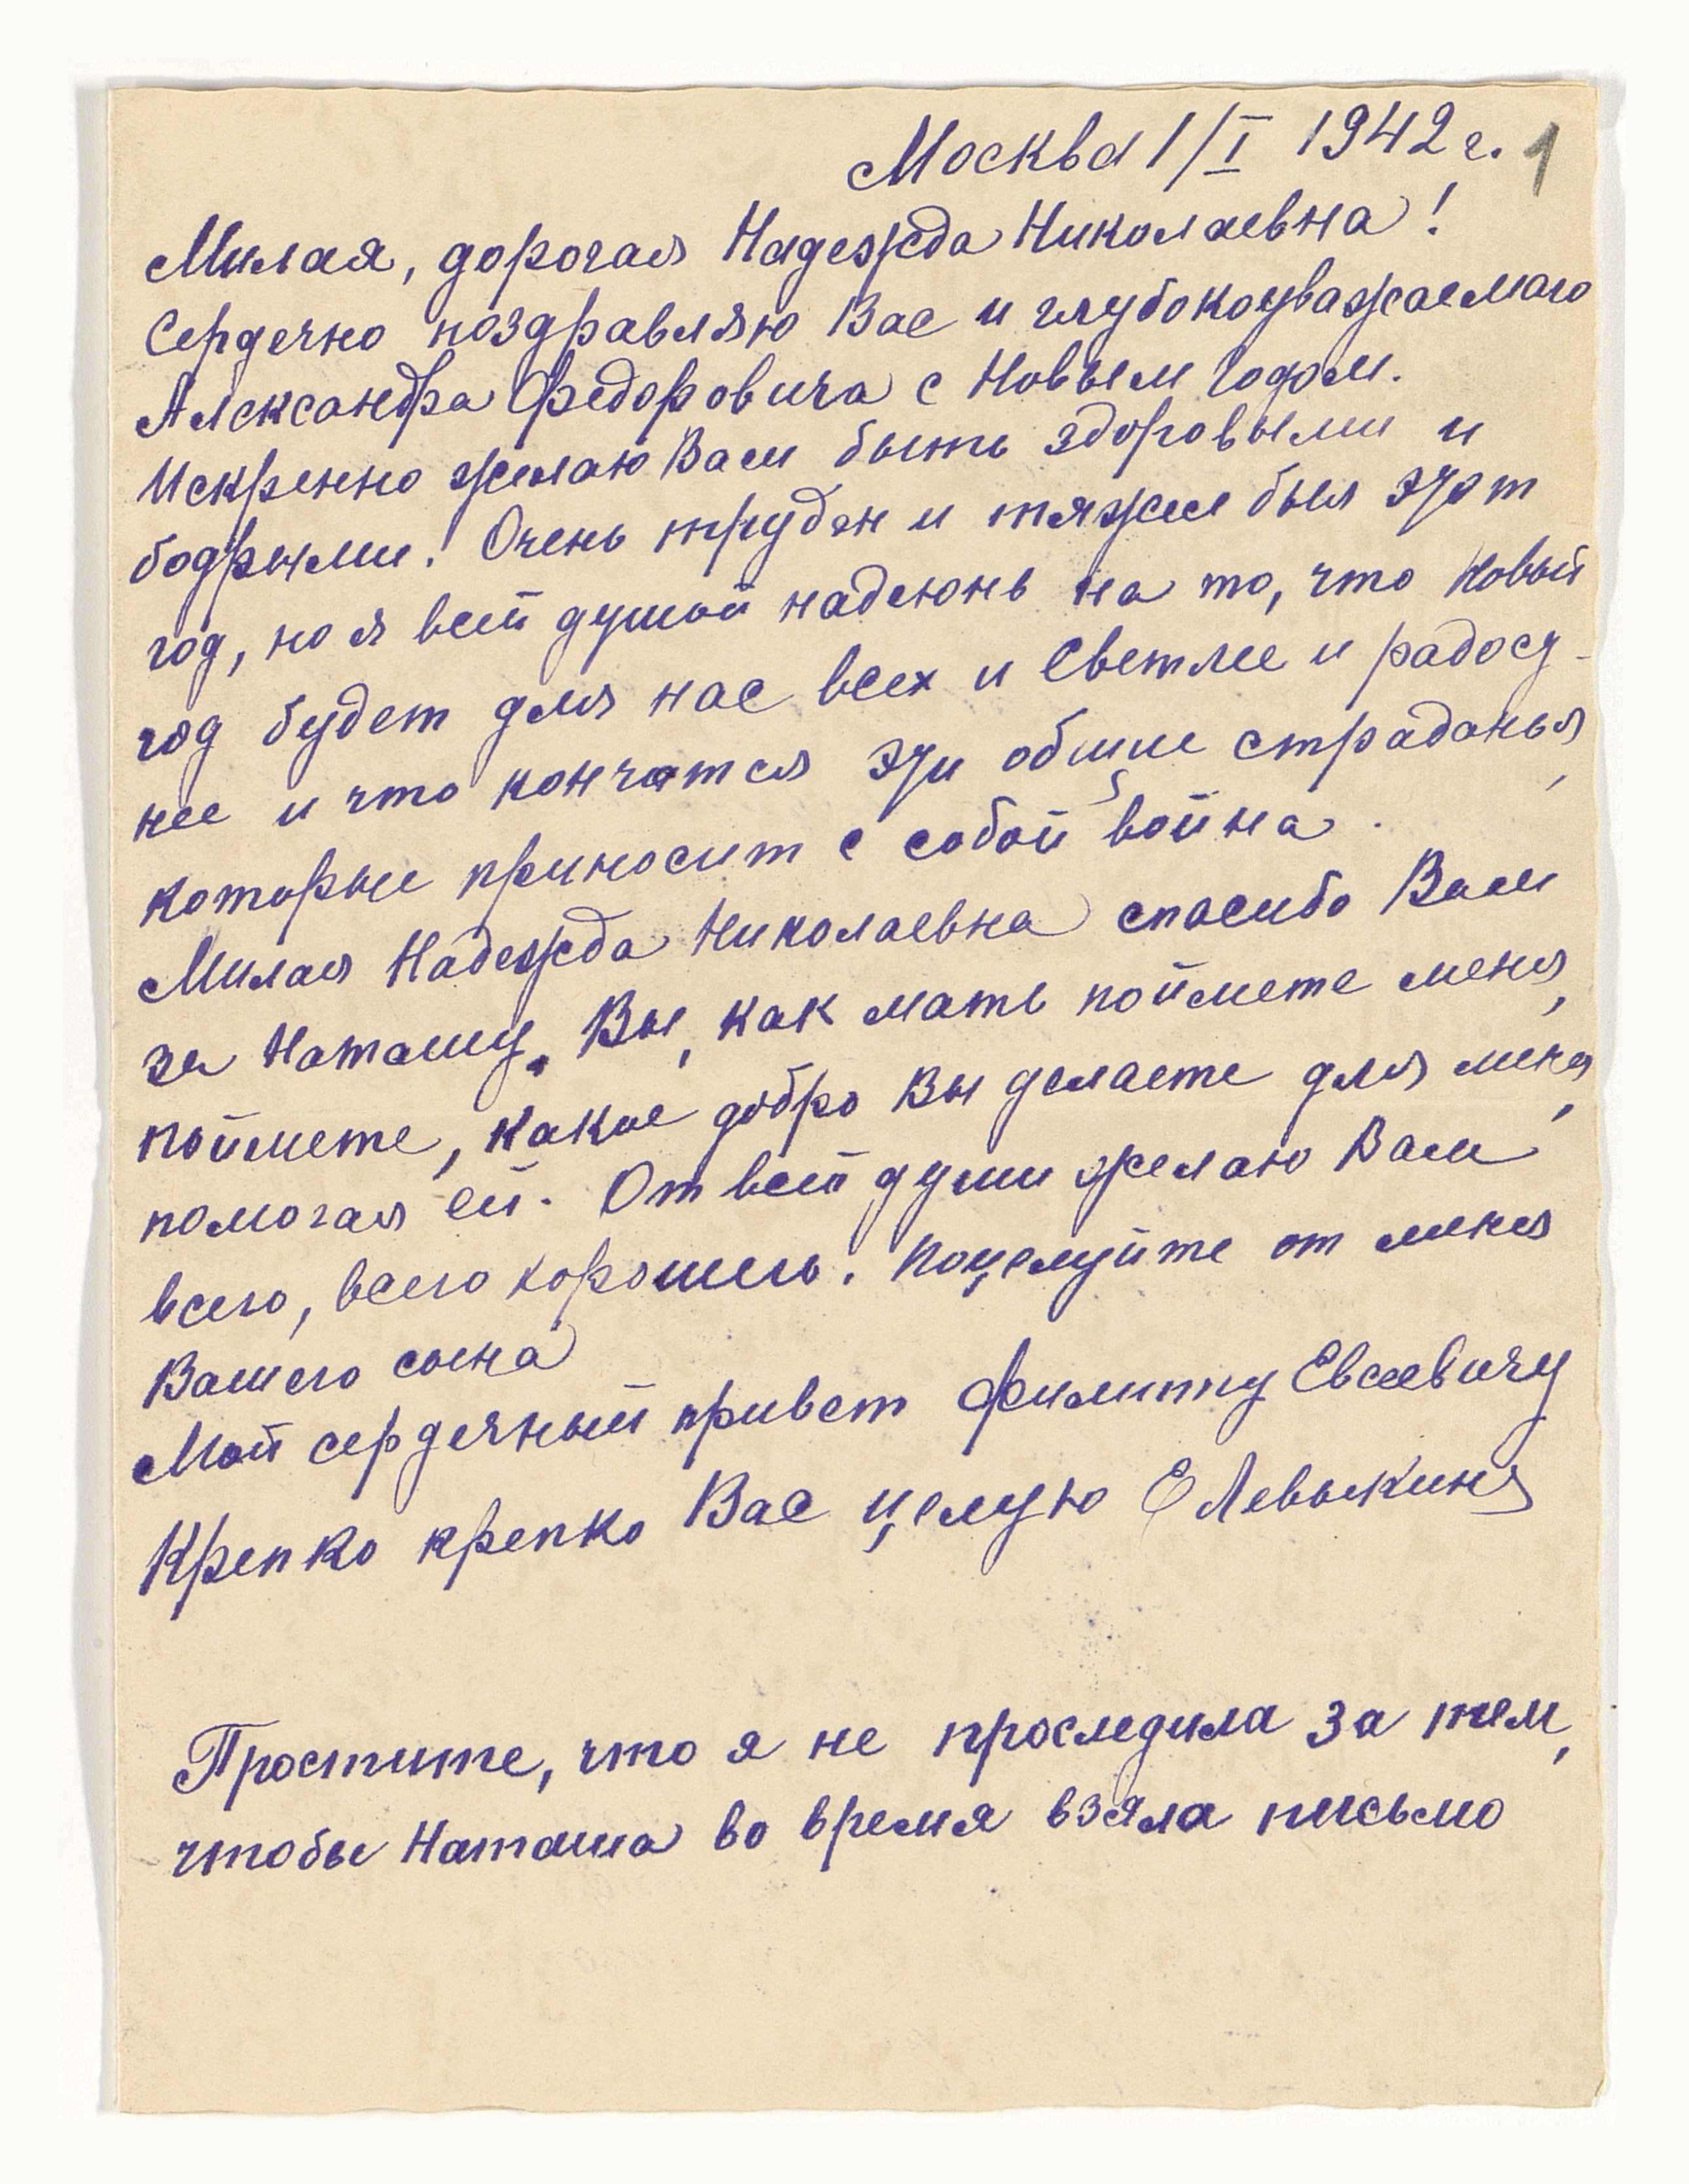 Москва 1/I 1942 г. 1
Милая, дорогая Надежда Николаевна!
Сердечно поздравляю Вас и глубокоуважаемаго
Александра Федоровича с Новым Годом.
Искренно желаю Вам быть здоровыми и
бодрыми! Очень труден и тяжел был этот
год, но я всей душой надеюнь на то, что Новый
год будет для нас всех и светлее и радост-
нее и что кончатся эти общие страданья,
которые приносит с собой война.
Милая Надежда Николаевна спасибо Вам
за Наташу. Вы, как мать поймете меня,
поймете, какое добро Вы делаете для меня,
помогая ей. От всей души желаю Вам
всего, всего хорошего. Поцелуйте от меня
Вашего сына
Мой сердечный привет Филиппу Евсеевичу
Крепко крепко Вас целую Е Левыкина
Простите, что я не проследила за тем,
чтобы Наташа во время взяла письмо